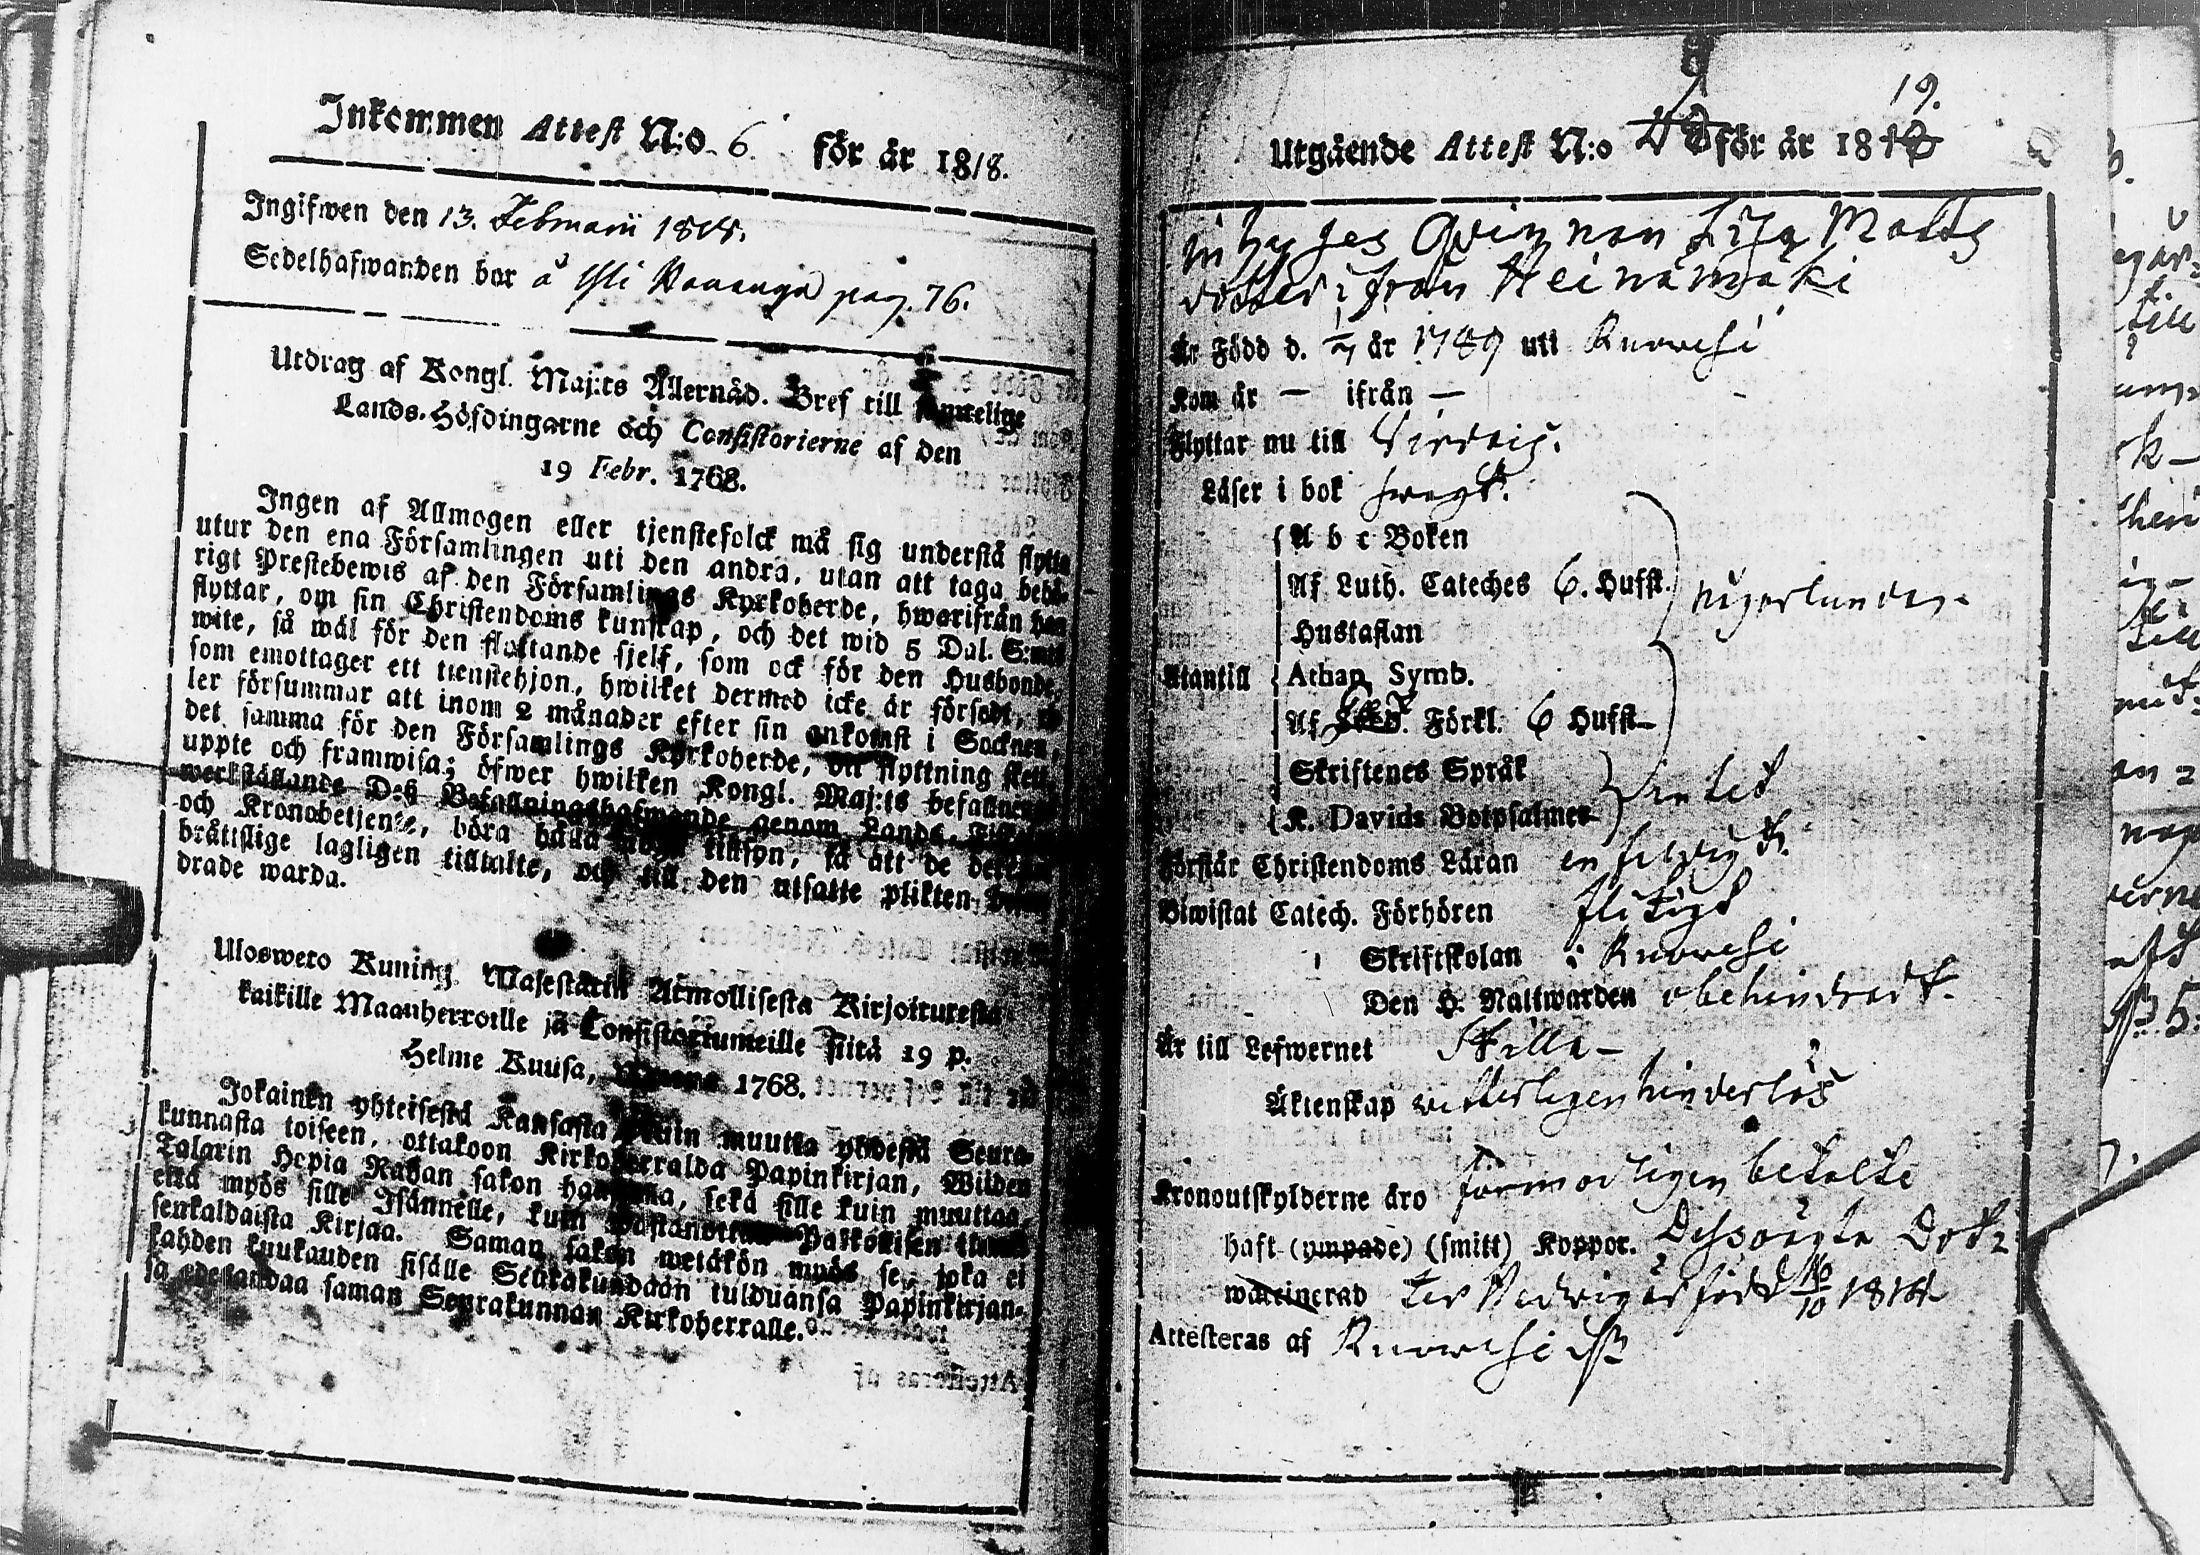 Inkommen Attest N:o 6. för år 1818.
Ingifwen den 13. Februarii 1818.
Sedelhafwanden bor å Yli pag. 76.
Utdrag af Kongl. Maj:ts Allernåd. Bref till samtelige
Lands-Höfdingarne och Consistorierne af den
19 Febr. 1768.
Ingen af Allmogen eller tjenstefolck må sig understå flytta
utur den ena Församlingen uti den andra, utan att taga behö-
rigt Prestebewis af den Församlings Kyrkoherde, hwarifrån han
flyttar, om sin Christendoms kunskap, och det wid 5 Dal. S:mts
wite, så wäl för den flyttande sjelf, som ock för den Husbonde,
som emottager ett tienstehjon, hwilket dermed icke är försedt,
ler försummar att inom 2 månader efter sin ankomst i Socknen,
det samma för den Församlings Kyrkoherde, dit flyttning skett,
uppte och framwisa; öfwer hwilken Kongl. Maj:ts befallnings
werkställande Deß Befallningshafwande genom Lands-
och Kronobetjente, böra hålla noga tillsyn, så att de
bråttslige lagligen tilltalte, och till den utsatte plikten
drade warda.
Ulosweto Kuning. Majestätin Armollisesta Kirjoituresta
kaikille Maanherroille ja Consistoriumeille siitä 19 p.
Helme Kuusa, 1768.
Jokainen yhteisestä Kansasta kuin muutta yhdestä Seura-
kunnasta toiseen, ottakoon Kirkoherralda Papinkirjan, Wiiden
Talarin Hopia Rahan sakon haastolla, sekä sille kuin muuttaa,
että myös sille Isännelle, kuin Palkollisen
senkaldaista Kirjaa. Saman sakon wetäkön myös se, joka ei
kahden kuukauden sisälle Seurakundaan tulduansa Papinkirjan-
sa edesandaa saman Seurakunnan Kirkoherralle.
Utgående Attest N:o för år 18 19.
Inhyses Qvinnan Lisa Matts
dotter ifrån Heinämäki
Är Född d. 1/7 år 1789 uti Ruowesi
Kom år — ifrån —
Flyttar nu till Virdois.
Läser i bok swagt.
A b c Boken
Af Luth. Cateches 6. Hufst.
någorlunda
Hustaflan
Utantill Athan. Symb.
Af Förkl. 6 Hufst
Skriftenes Språk
intet
K. Davids Botpsalmer
Förstår Christendoms Läran enfaldigt.
Biwistat Catech. Förhören flitigt
Skriftskolan i Ruowesi
Den H. Nattwarden obehindradt.
Är till Lefwernet Stilla
Äktenskap vitterligen hinderlös
Kronoutskylderne äro förmodligen betalte
haft (ympade) (smitt) Koppor. Dess oägta Dot-
waccinerad ter Hedvig är född 16/10 1814
Attesteras af Ruowesi